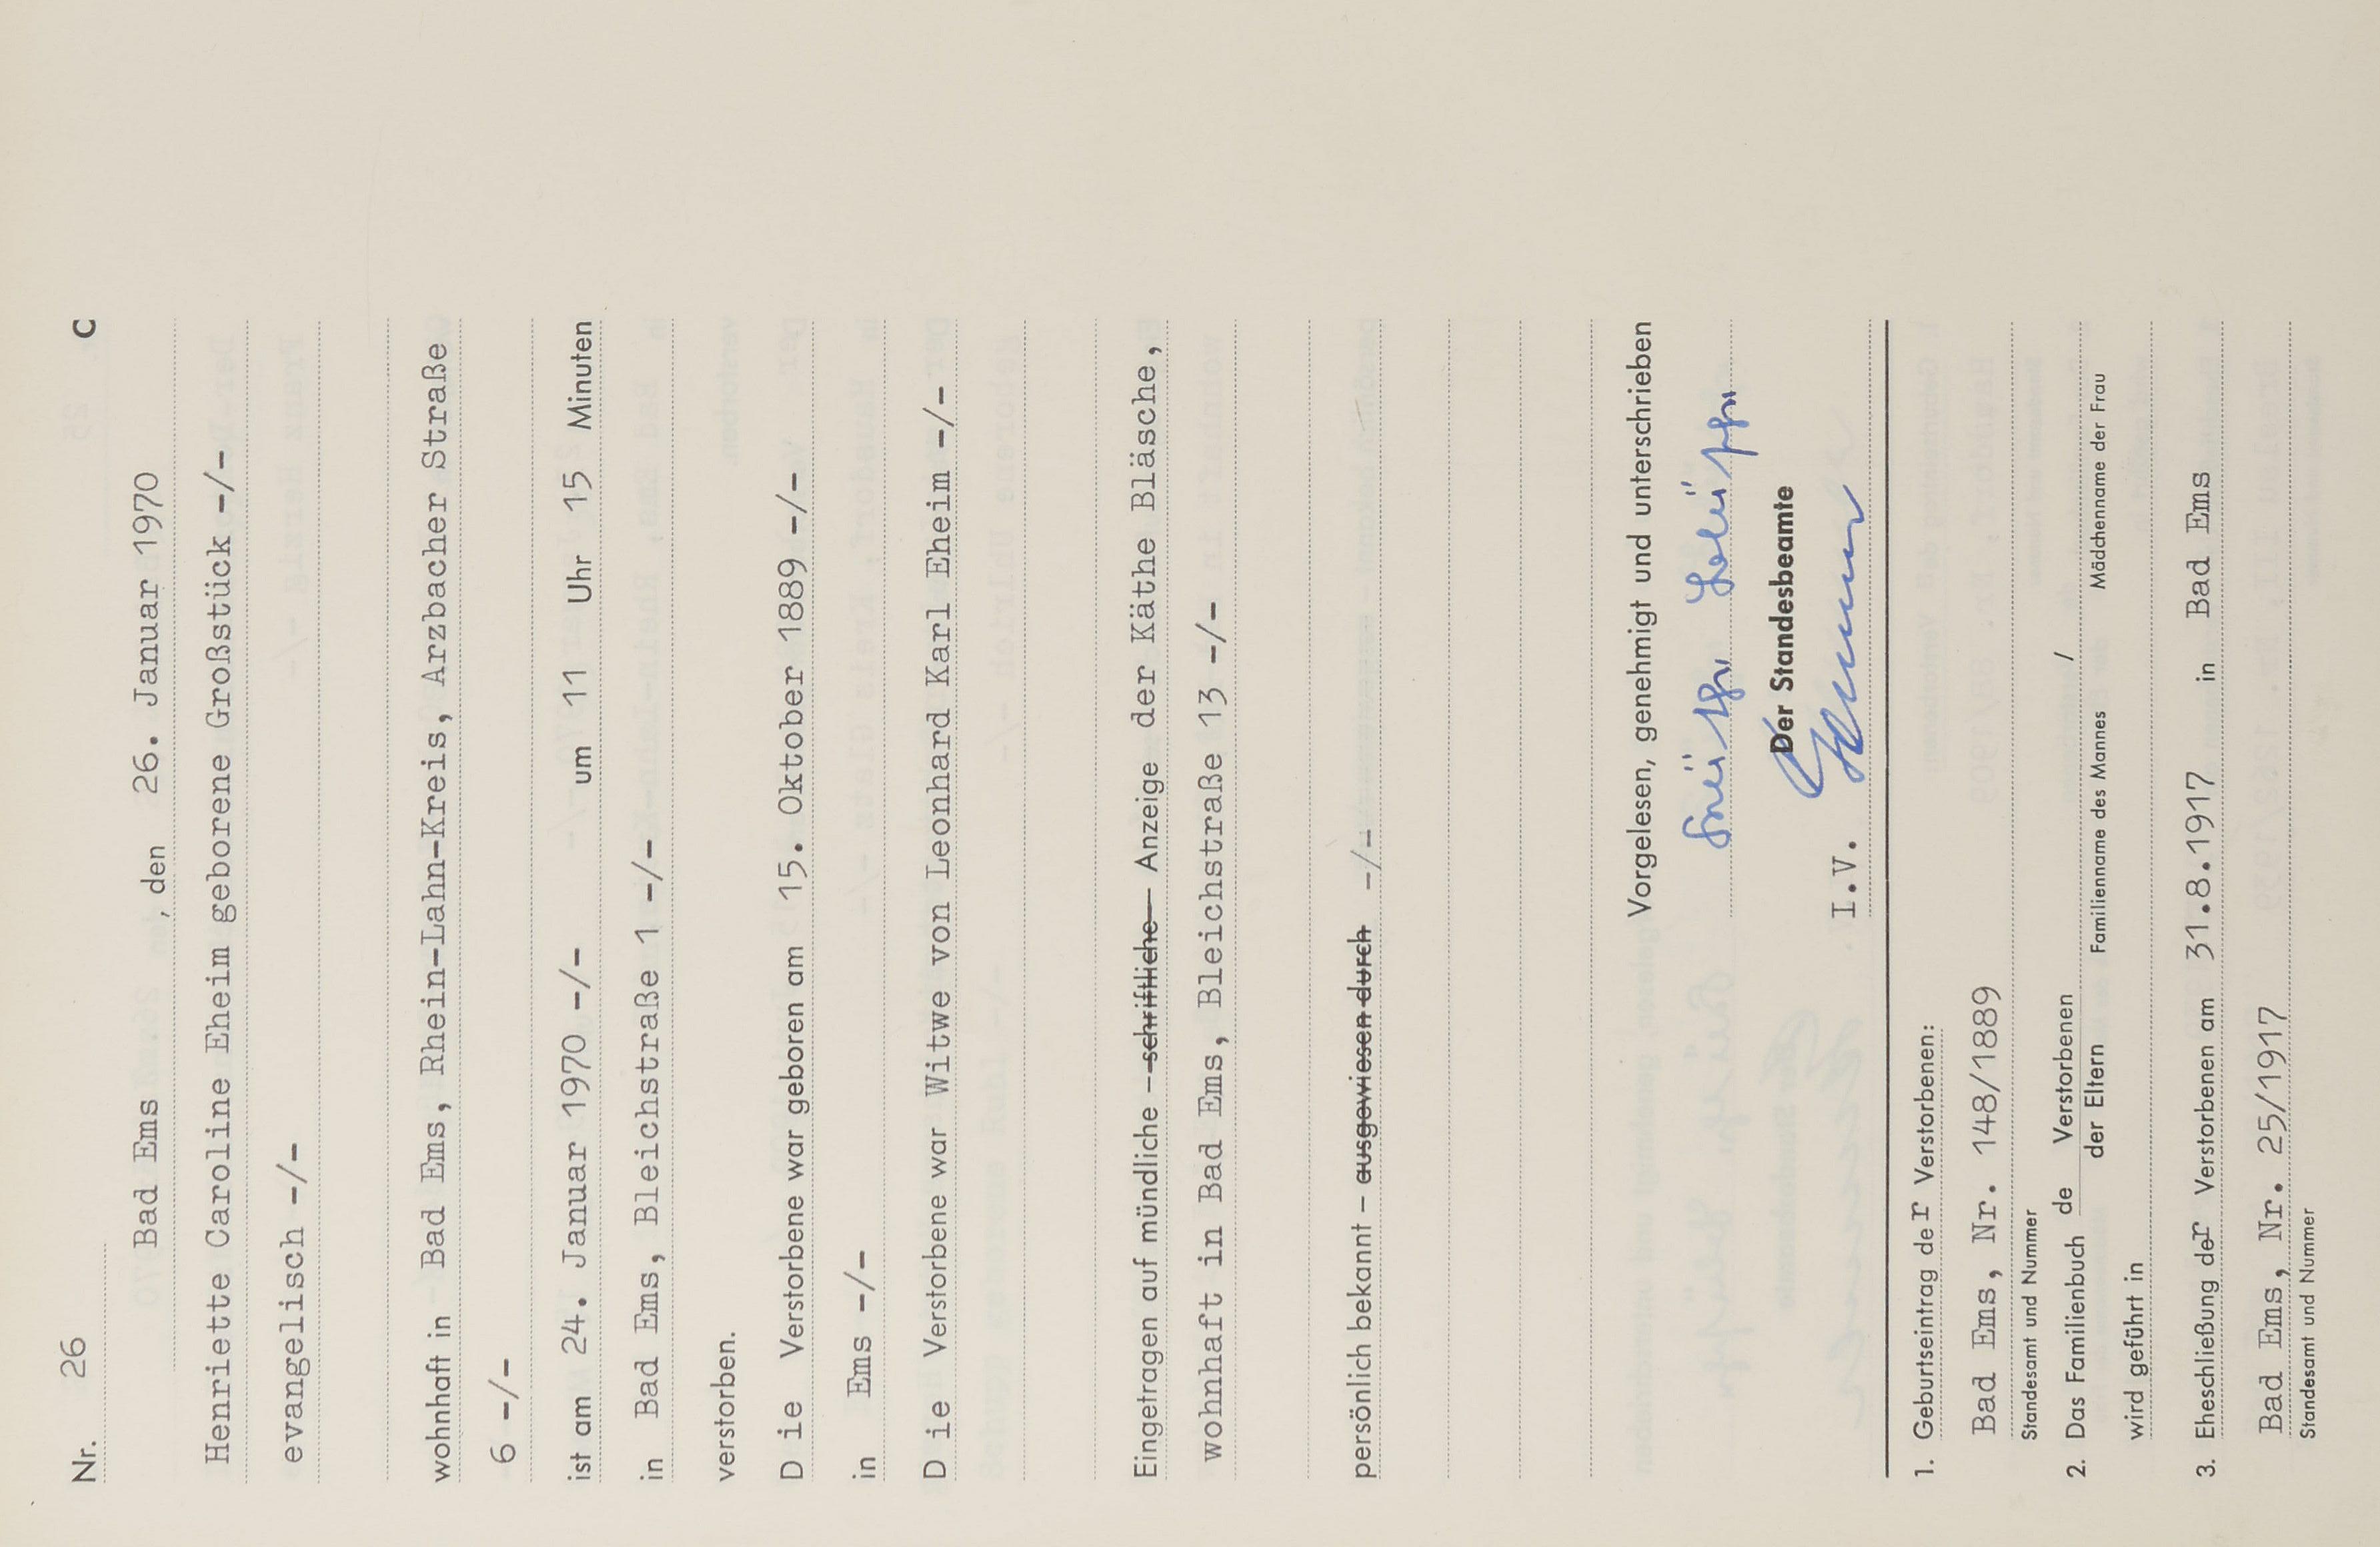 Nr. 26 C
Bad Ems, den 26. Januar 1970
Henriette Caroline Eheim geborene Großstück -/-
evangelisch -/-
wohnhaft in Bad Ems, Rhein-Lahn-Kreis, Arzbacher Straße
6 -/-
ist am 24. Januar 1970 -/- um 11 Uhr 15 Minuten
in Bad Ems, Bleichstraße 1 -/-
verstorben.
Die Verstorbene war geboren am 15. Oktober 1889 -/-
in Ems -/-
Die Verstorbene war Witwe von Leonhard Karl Eheim -/-
Eingetragen auf mündliche - schriftliche - Anzeige der Käthe Bläsche,
wohnhaft in Bad Ems, Bleichstraße 13 -/-
persönlich bekannt - ausgewiesen durch -/-
Vorgelesen, genehmigt und unterschrieben
Der Standesbeamte
I.V.
1. Geburtseintrag der Verstorbenen:
Bad Ems, Nr. 148/1889
Standesamt und Nummer
2. Das Familienbuch de Verstorbenen /
der Eltern Familienname des Mannes Mädchenname der Frau
wird geführt in
3. Eheschließung der Verstorbenen am 31.8.1917 in Bad Ems
Bad Ems, Nr. 25/1917
Standesamt und Nummer